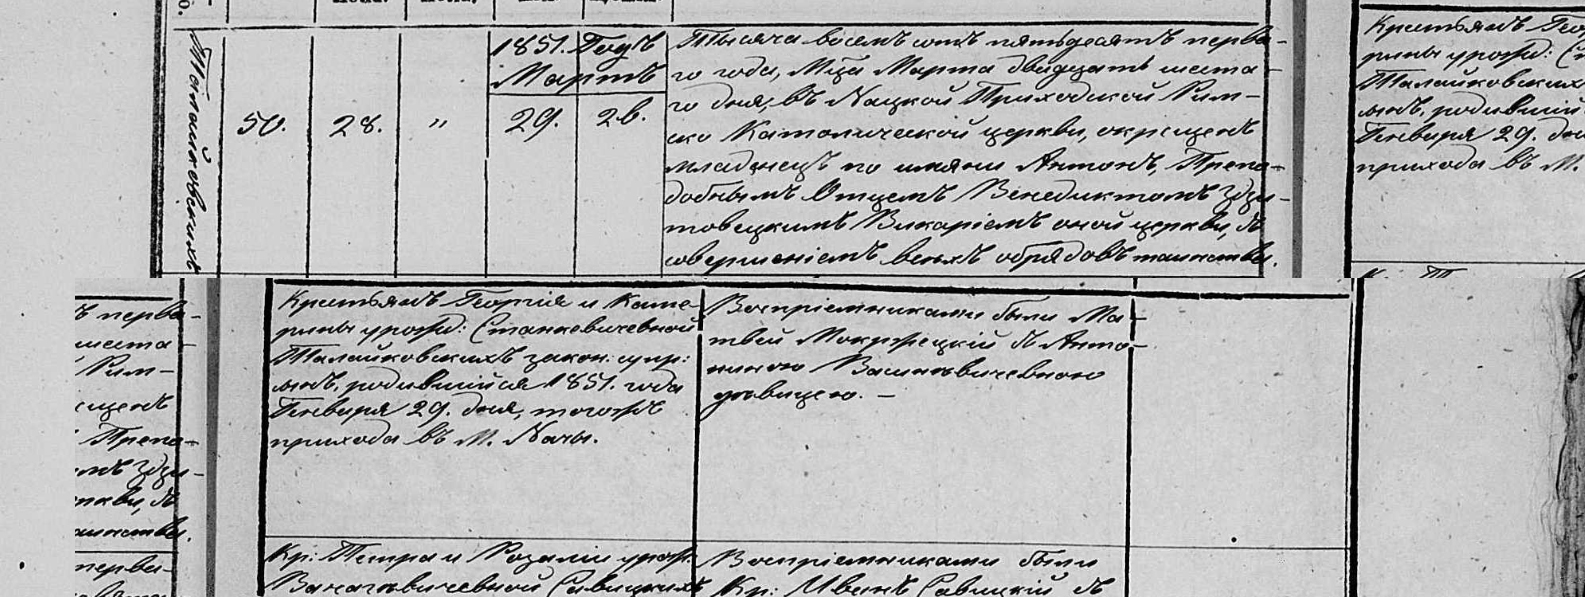 Талайковскихъ
50.
28.
"
1851. Годъ
Мартъ
29.
26.
Тысяча восемь сотъ пятьдесятъ перва-
го года, М-ца Марта двадцать шеста-
го дня, въ Нацкой Приходской Рим-
ско Католической церкви, окрещенъ
младенецъ по имяни Антонъ, Препо-
добнымъ Отцемъ Венедиктомъ Здзи-
товецкимъ Викаріемъ оной церкви, съ
совершеніемъ всѣхъ обрядовъ таинства.
Крестьянъ Георгія и Кате-
рины урожд: Станкевичевной
Талайковскихъ закон: супр:
сынъ, родившійся 1851. года
Генваря 29. дня, тогожъ
прихода въ М. Начи.
Воспріемниками были Ма-
твей Мокржецкій съ Анто-
ниною Вашкевичевною
дѣвицею. —
Кр: Петра и Розаліи урож:
Савицкихъ
Воспріемниками были
Кр: Иванъ Савицкій съ
Крестьянъ Геор
рины урожд: С
Талайковскихъ
сынъ, родившій
Генваря 29. дня
прихода въ М.
ъ перва-
шеста-
Рим-
ещенъ
Препо-
омъ Здзи-
церкви, съ
таинства.
перва-